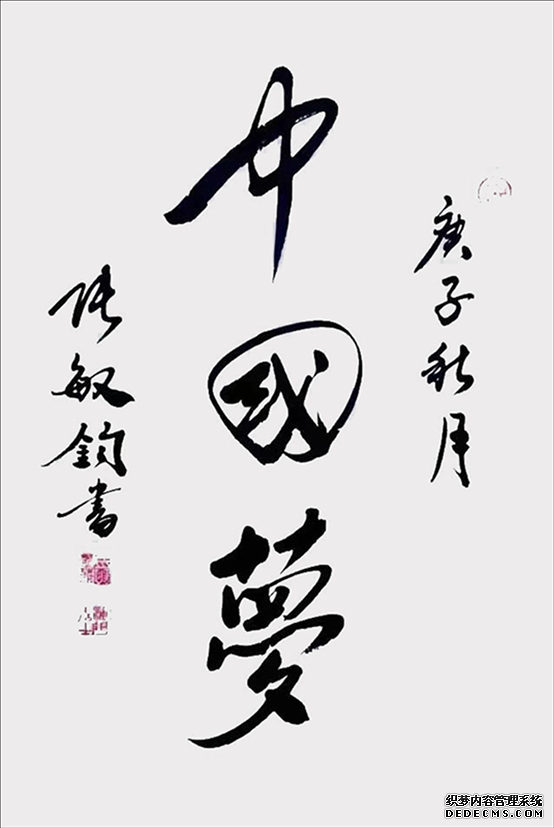 庚子秋月
中國夢
张敏鈞書
织梦内容管理系统
DEDECMS.COM